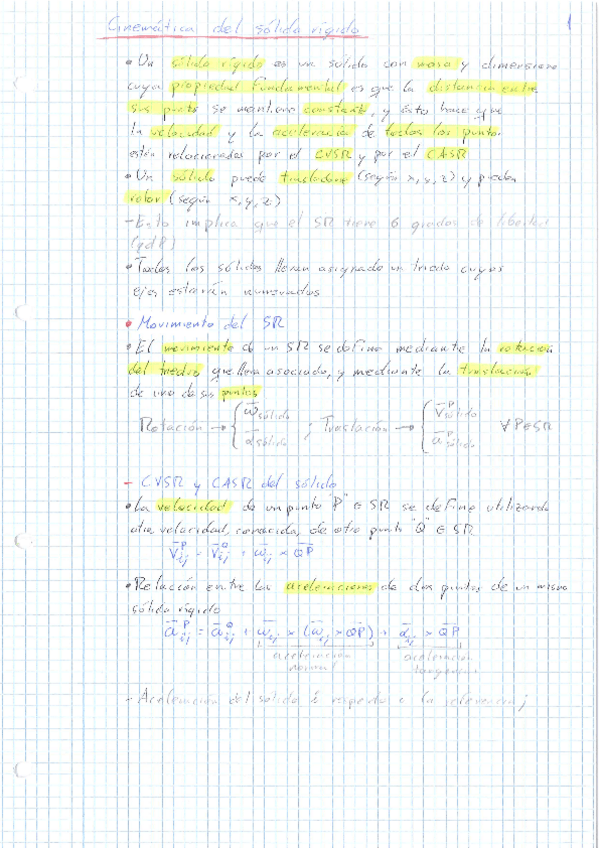 Cinemática del sólido rígido 1
• Un sólido rígido es un sólido con masa y dimensiones
cuya propiedad fundamental es que la distancia entre
sus puntos se mantiene constante, y ésto hace que
la velocidad y la aceleración de todos los puntos
están relacionadas por el CVSR y por el CASR
• Un sólido puede trasladarse (según x, y, z) y puede
rotar (según x, y, z)
- Esto implica que el SR tiene 6 grados de libertad
(gdl)
• Todos los sólidos llevan asignado un triedro cuyos
ejes estarán numerados
• Movimiento del SR
• El movimiento de un SR se define mediante la rotación
del triedro que lleva asociado, y mediante la traslación
de uno de sus puntos
Rotación → { ω⃗ sólido ; Traslación → { v⃗ᴾ sólido ∀P∈SR
α⃗ sólido a⃗ᴾ sólido
- CVSR y CASR del sólido
• La velocidad de un punto "P" ∈ SR se define utilizando
otra velocidad, conocida, de otro punto "Q" ∈ SR
v̄ᴾij = v̄Qij + ω̄ij × Q̄P̄
• Relación entre las aceleraciones de dos puntos de un mismo
sólido rígido
āᴾij = āQij + ω̄ij × (ω̄ij × Q̄P̄) + ᾱij × Q̄P̄
aceleración aceleración
normal tangencial
- Aceleración del sólido i respecto a la referencia j